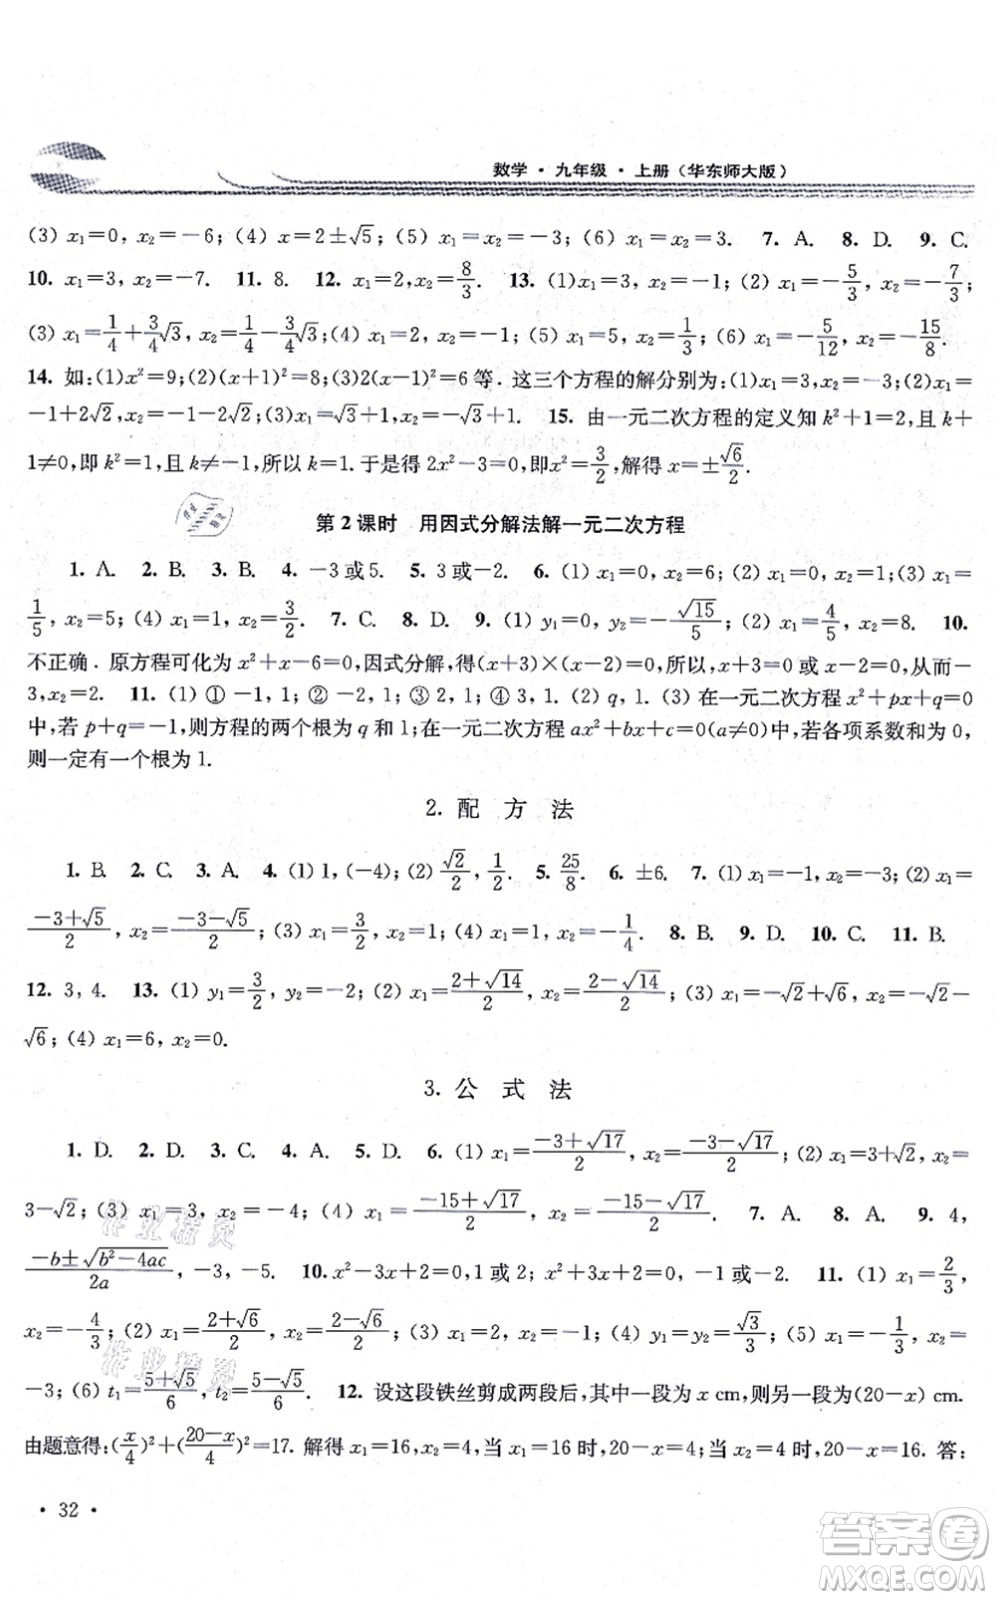 数学·九年级·上册（华东师大版）
(3) x₁=0, x₂=-6; (4) x=2±√5; (5) x₁=x₂=-3; (6) x₁=x₂=3. 7. A. 8. D. 9. C.
10. x₁=3, x₂=-7. 11. 8. 12. x₁=2, x₂=8/3. 13. (1)x₁=3, x₂=-1; (2) x₁=-5/3, x₂=-7/3;
(3) x₁=1/4+3/4√3, x₂=1/4-3/4√3; (4) x₁=7, x₂=-1; (5) x₁=3, x₂=1/3; (6) x₁=-5/12, x₂=-15/8.
14. 如:(1)x²=9;(2)(x+1)²=8;(3)2(x-1)²=6等.这三个方程的解分别为:(1)x₁=3,x₂=-3;(2)x₁=
-1+2√2, x₂=-1-2√2;(3)x₁=√3+1,x₂=-√3+1. 15. 由一元二次方程的定义知k²+1=2,且k+
1≠0,即k²=1,且k≠-1,所以k=1.于是得2x²-3=0,即x²=3/2,解得x=±√6/2.
第2课时 用因式分解法解一元二次方程
1. A. 2. B. 3. B. 4. -3或5. 5. 3或-2. 6. (1) x₁=0, x₂=6; (2) x₁=0, x₂=1;(3) x₁=
1/5, x₂=5; (4) x₁=1, x₂=3/2. 7. C. 8. D. 9. (1) y₁=0, y₂=-√15/5; (2) x₁=4/5, x₂=8. 10.
不正确.原方程可化为x²+x-6=0,因式分解,得(x+3)×(x-2)=0,所以,x+3=0或x-2=0,从而x=-
3,x₂=2. 11. (1) ① -1, 1; ② -2, 1; ③ 2, 1; ④ 3, 1. (2) q, 1. (3) 在一元二次方程x²+px+q=0
中,若p+q=-1,则方程的两个根为q和1;在一元二次方程ax²+bx+c=0(a≠0)中,若各项系数和为0,
则一定有一个根为1.
2. 配 方 法
1. B. 2. C. 3. A. 4. (1) 1, (-4); (2) √2/2, 1/2. 5. 25/8. 6. ±6. 7. (1) x₁=-1, x₂=-3; (2) x₁=
(-3+√5)/2, x₂=(-3-√5)/2; (3) x₁=3/2, x₂=1; (4) x₁=1, x₂=-1/4. 8. B. 9. D. 10. C. 11. B.
12. 3, 4. 13. (1) y₁=3/2, y₂=-2; (2) x₁=(2+√14)/2, x₂=(2-√14)/2; (3) x₁=-√2+√6, x₂=-√2-
√6; (4) x₁=6, x₂=0.
3. 公 式 法
1. D. 2. D. 3. B. 4. A. 5. D. 6. (1) x₁=(-3+√17)/2, x₂=(-3-√17)/2; (2) x₁=3+√2, x₂=
3-√2; (3) x₁=3, x₂=-4; (4) x₁=(-15+√17)/2, x₂=(-15-√17)/2. 7. A. 8. A. 9. 4,
(-b±√(b²-4ac))/2a, -3, -5. 10. x²-3x+2=0,1或2; x²+3x+2=0,-1或-2. 11. (1) x₁=2/3,
x₂=-4/3; (2) x₁=(2+√6)/2, x₂=(2-√6)/2; (3) x₁=6, x₂=-1; (4) y₁=y₂=√3/3; (5) x₁=9, x₂=
-3; (6) t₁=(5+√5)/6, t₂=(5-√5)/6. 12. 设这段铁丝剪成两段后,其中一段为x cm,则另一段为(20-x) cm.
由题意得:(x/4)²+((20-x)/4)²=17. 解得x₁=16,x₂=4,当x=16时,20-x=4;当x=4时,20-x=16. 答:
·32·
作业精灵
作业精灵
答案卷
MXQE.COM